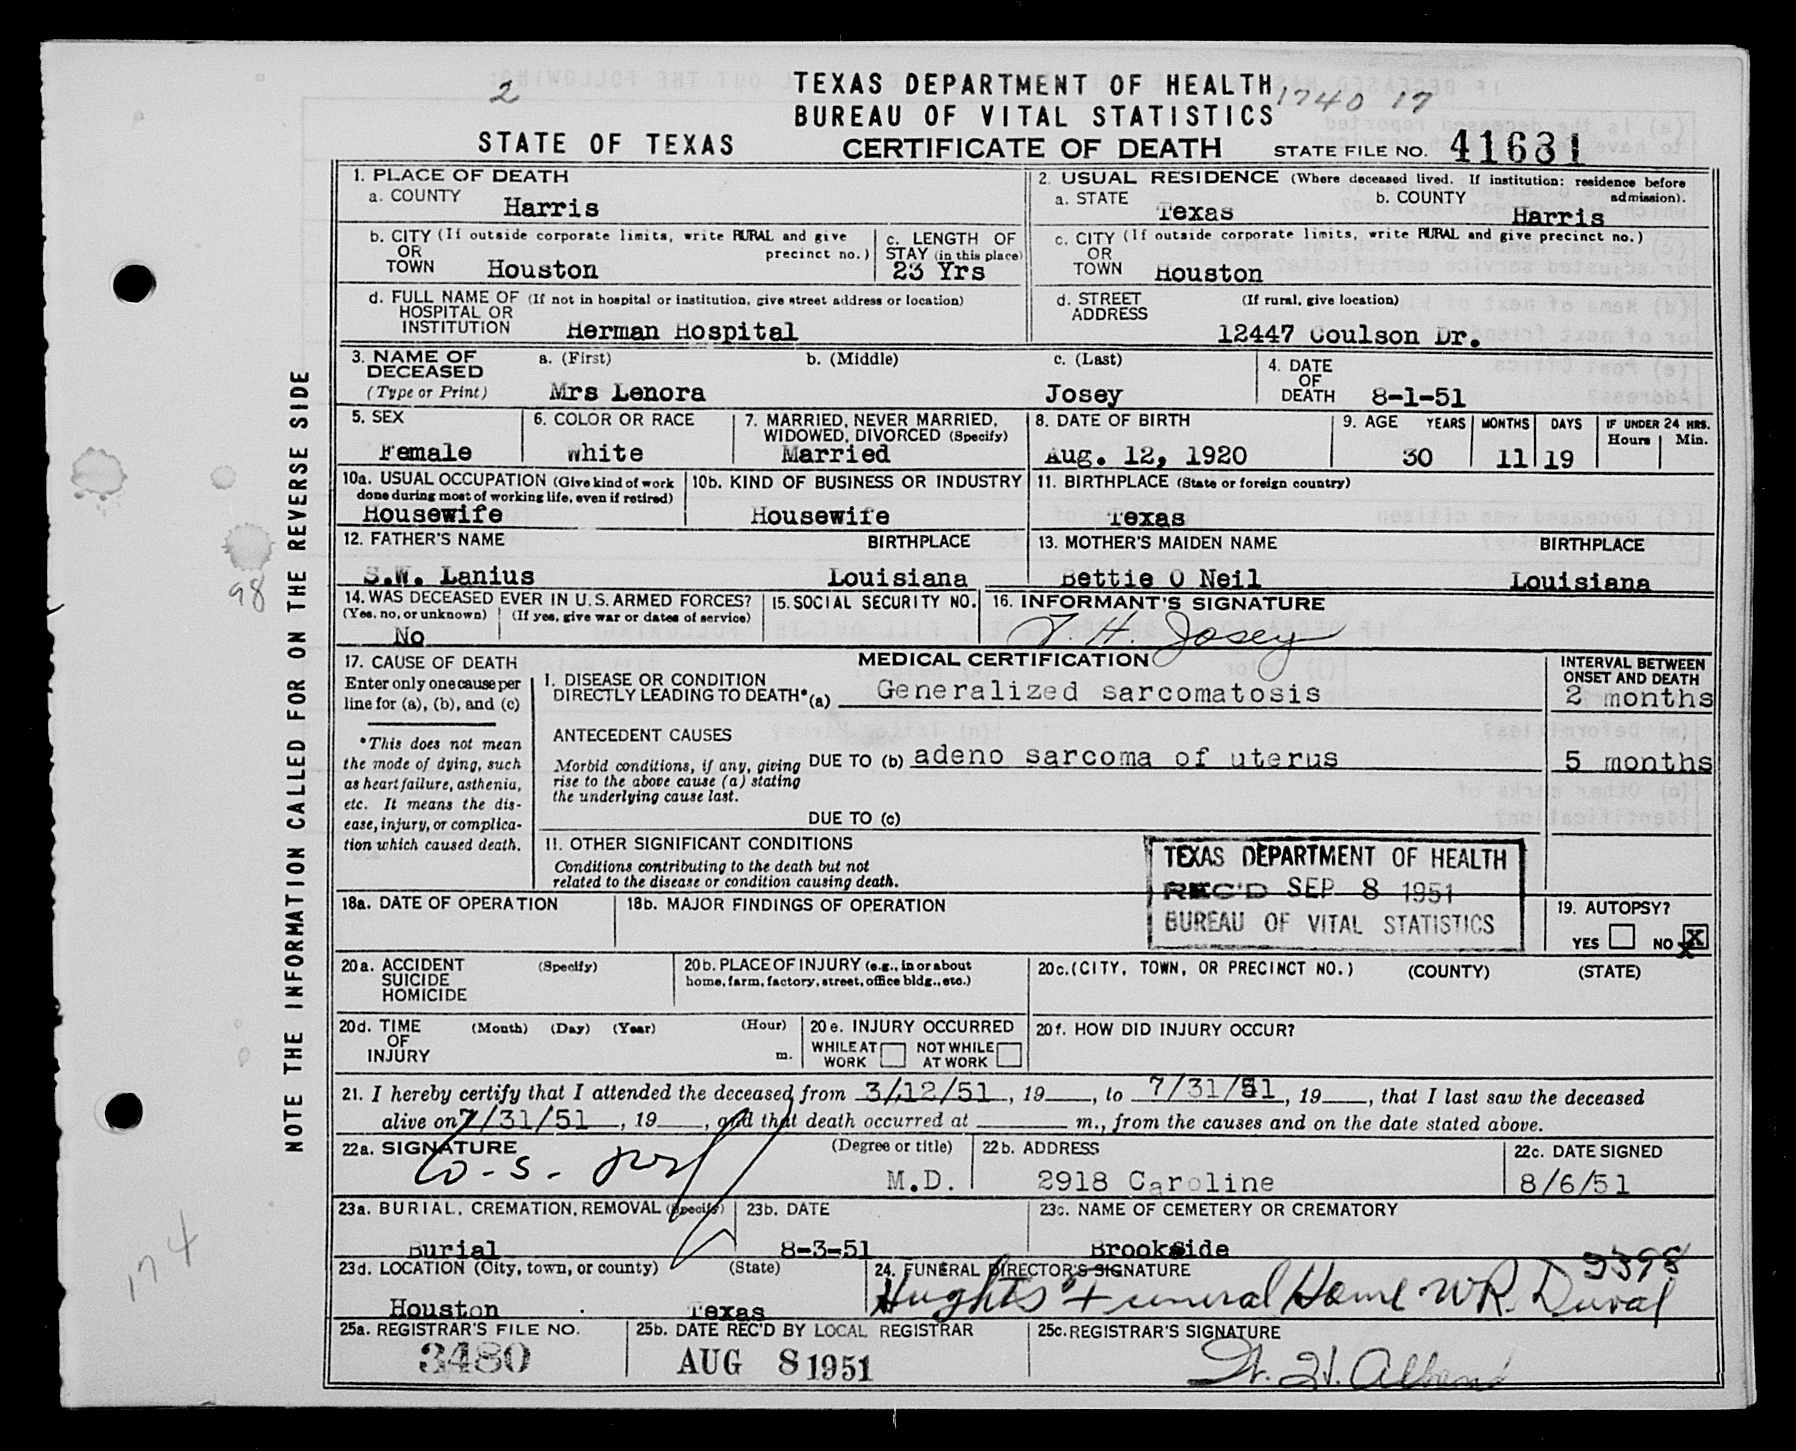 2
TEXAS DEPARTMENT OF HEALTH
1740 17
BUREAU OF VITAL STATISTICS
STATE OF TEXAS CERTIFICATE OF DEATH STATE FILE NO. 41631
1. PLACE OF DEATH
a. COUNTY Harris
2. USUAL RESIDENCE (Where deceased lived. If institution: residence before admission).
a. STATE Texas b. COUNTY Harris
b. CITY (If outside corporate limits, write RURAL and give precinct no.)
OR
TOWN Houston
c. LENGTH OF
STAY (in this place)
23 Yrs
c. CITY (If outside corporate limits, write RURAL and give precinct no.)
OR
TOWN Houston
d. FULL NAME OF (If not in hospital or institution, give street address or location)
HOSPITAL OR
INSTITUTION Herman Hospital
d. STREET (If rural, give location)
ADDRESS 12447 Coulson Dr.
3. NAME OF DECEASED a. (First) b. (Middle) c. (Last)
(Type or Print) Mrs Lenora Josey
4. DATE
OF
DEATH 8-1-51
5. SEX
Female
6. COLOR OR RACE
White
7. MARRIED, NEVER MARRIED,
WIDOWED, DIVORCED (Specify)
Married
8. DATE OF BIRTH
Aug. 12, 1920
9. AGE YEARS MONTHS DAYS IF UNDER 24 HRS.
Hours Min.
30 11 19
10a. USUAL OCCUPATION (Give kind of work
done during most of working life, even if retired)
Housewife
10b. KIND OF BUSINESS OR INDUSTRY
Housewife
11. BIRTHPLACE (State or foreign country)
Texas
12. FATHER'S NAME BIRTHPLACE
S.W. Lanius Louisiana
13. MOTHER'S MAIDEN NAME BIRTHPLACE
Bettie O Neil Louisiana
14. WAS DECEASED EVER IN U.S. ARMED FORCES?
(Yes, no, or unknown) (If yes, give war or dates of service)
No
15. SOCIAL SECURITY NO.
16. INFORMANT'S SIGNATURE
T. H. Josey
17. CAUSE OF DEATH
Enter only one cause per
line for (a), (b), and (c)
*This does not mean
the mode of dying, such
as heart failure, asthenia,
etc. It means the dis-
ease, injury, or complica-
tion which caused death.
MEDICAL CERTIFICATION
INTERVAL BETWEEN
ONSET AND DEATH
I. DISEASE OR CONDITION
DIRECTLY LEADING TO DEATH*(a) Generalized sarcomatosis 2 months
ANTECEDENT CAUSES
Morbid conditions, if any, giving
rise to the above cause (a) stating
the underlying cause last.
DUE TO (b) adeno sarcoma of uterus 5 months
DUE TO (c)
II. OTHER SIGNIFICANT CONDITIONS
Conditions contributing to the death but not
related to the disease or condition causing death.
TEXAS DEPARTMENT OF HEALTH
REC'D SEP 8 1951
BUREAU OF VITAL STATISTICS
18a. DATE OF OPERATION 18b. MAJOR FINDINGS OF OPERATION
19. AUTOPSY?
YES NO X
20a. ACCIDENT (Specify)
SUICIDE
HOMICIDE
20b. PLACE OF INJURY (e.g., in or about
home, farm, factory, street, office bldg., etc.)
20c. (CITY, TOWN, OR PRECINCT NO.) (COUNTY) (STATE)
20d. TIME (Month) (Day) (Year) (Hour)
OF
INJURY m.
20e. INJURY OCCURRED
WHILE AT WORK NOT WHILE AT WORK
20f. HOW DID INJURY OCCUR?
21. I hereby certify that I attended the deceased from 3/12/51, 19___, to 7/31/51, 19___, that I last saw the deceased
alive on 7/31/51, 19___, and that death occurred at ___ m., from the causes and on the date stated above.
22a. SIGNATURE (Degree or title)
M.D.
22b. ADDRESS
2918 Caroline
22c. DATE SIGNED
8/6/51
23a. BURIAL, CREMATION, REMOVAL (Specify)
Burial
23b. DATE
8-3-51
23c. NAME OF CEMETERY OR CREMATORY
Brookside
23d. LOCATION (City, town, or county) (State)
Houston Texas
24. FUNERAL DIRECTOR'S SIGNATURE 2398
Hughes Funeral Home W R. Duval
25a. REGISTRAR'S FILE NO.
3480
25b. DATE REC'D BY LOCAL REGISTRAR
AUG 8 1951
25c. REGISTRAR'S SIGNATURE
NOTE THE INFORMATION CALLED FOR ON THE REVERSE SIDE
98
174